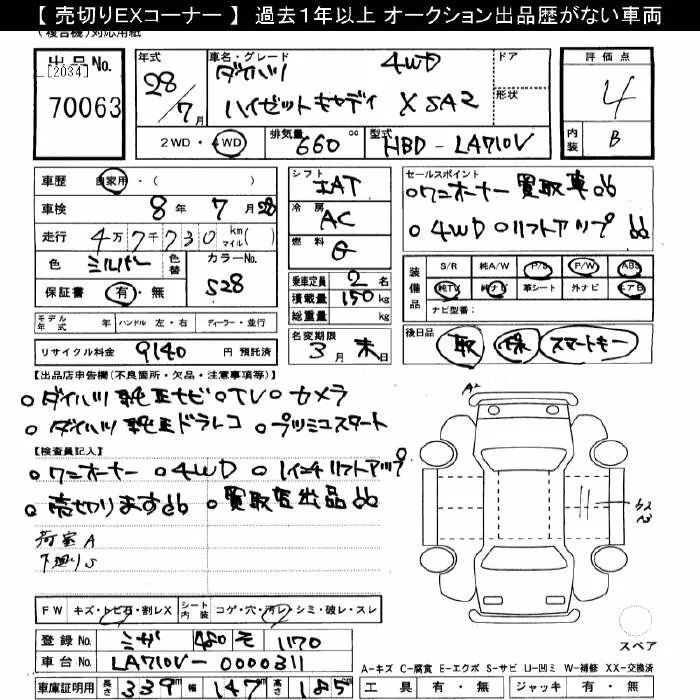 【 売切りEXコーナー 】 過去1年以上 オークション出品歴がない車両
(複合機)対応用紙
出品No.
[2034]
70063
年式
28/7月
車名・グレード
ダイハツ 4WD
ハイゼットキャディ X SA2
ドア
形状
評価点
4
内装
B
2WD・4WD
排気量
660 cc
型式
HBD-LA710V
車歴 自家用・( )
車検 8年 7月28
走行 4万7千730 km マイル( )
色 シルバー 色替 カラーNo. S28
保証書 有・無
モデル年式 年 ハンドル 左・右 ディーラー・並行
リサイクル料金 9140 円 預託済
シフト
IAT
冷房
AC
燃料
G
乗車定員 2 名
積載量 150 kg
総重量 kg
名変期限
3月末日
セールスポイント
○ワンオーナー 買取車!!
○4WD ○リフトアップ!!
装備品
S/R 純A/W P/S P/W ABS
純TV 純ナビ 革シート 外ナビ エアB
ナビ型番:
後日品
取 保 スマートキー
【出品店申告欄(不良箇所・欠品・注意事項等)】
○ダイハツ純正ナビ○TV○カメラ
○ダイハツ純正ドラレコ ○プッシュスタート
【検査員記入】
○ワンオーナー ○4WD ○1インチリフトアップ
○売切ります!! ○買取質出品!!
荷室A
下廻りS
A2
b2
A3
FW キズ・トビ石・割レX シート内装 コゲ・穴・汚レ・シミ・破レ・スレ
登録No. ミガ 480 そ 1170
車台No. LA710V-0000311
車庫証明用 長さ 339 幅 147 高さ 185
スペア
A-キズ C-腐食 E-エクボ S-サビ U-凹ミ W-補修 XX-交換済
工具 有・無 ジャッキ 有・無